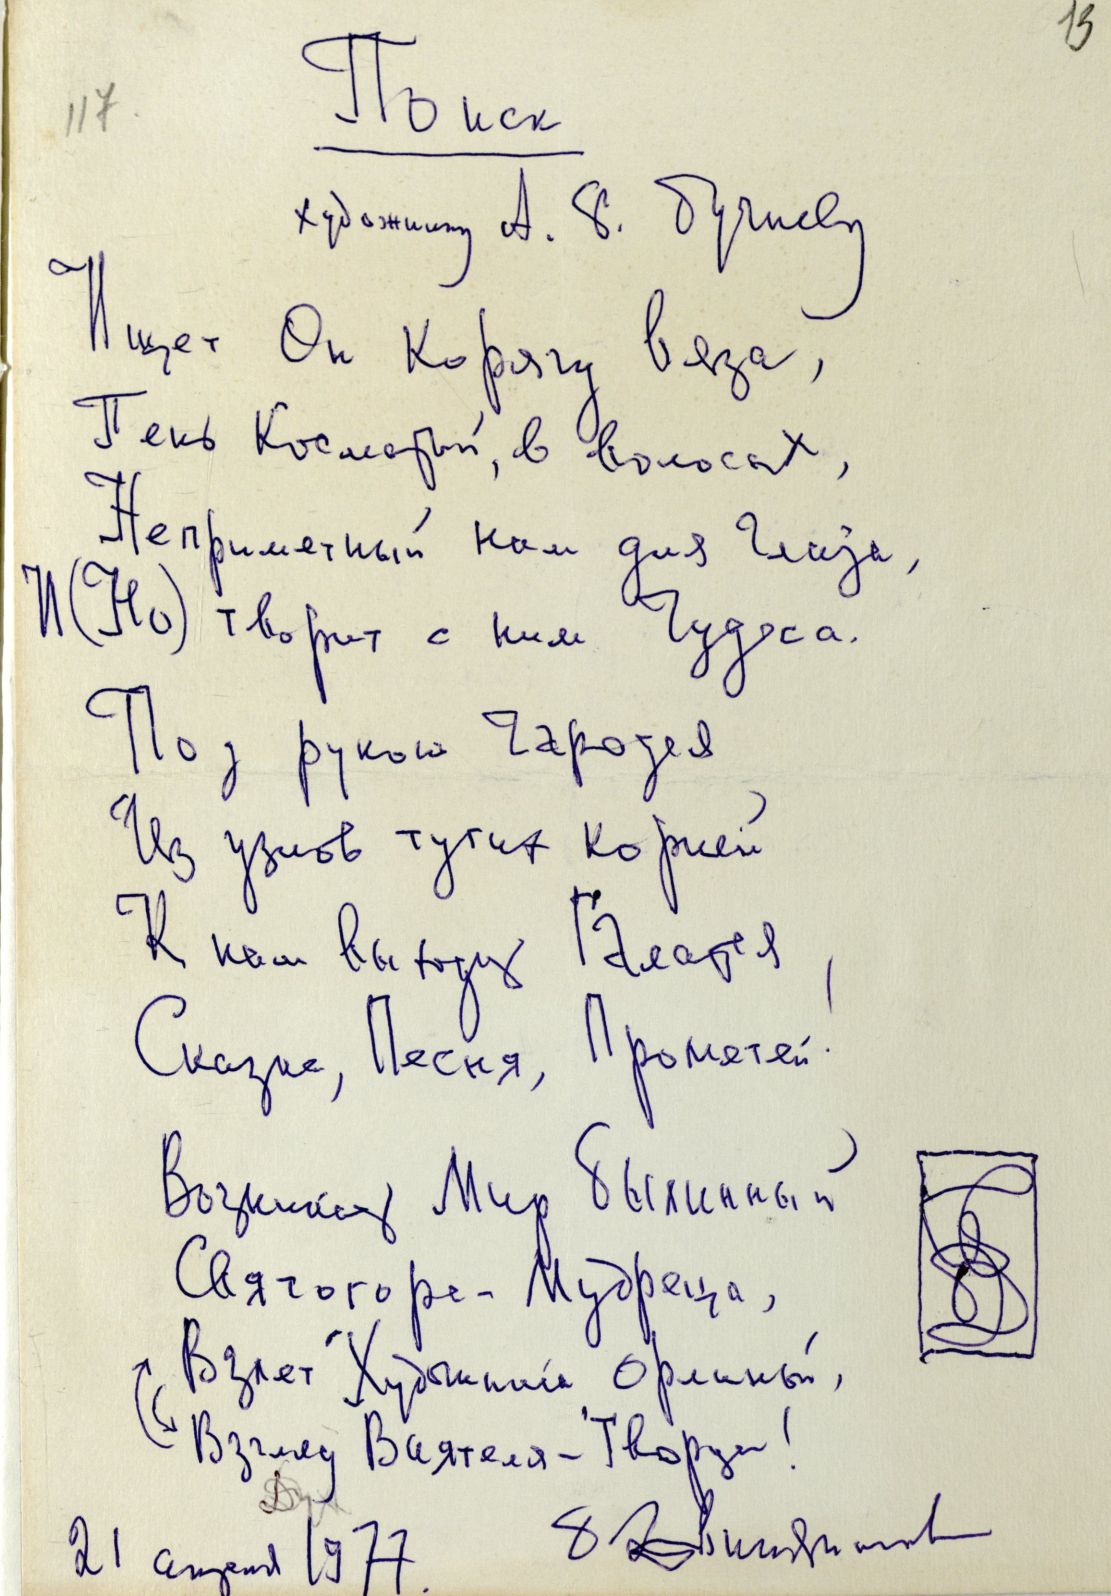 13
117.
Поиск
художнику А. Б.
Ищет Он Корягу Вяза,
Пень Косматый, в волосах,
Неприметный нам для Глаза,
И (Но) творит с ним Чудеса.
Под рукою Чародея
Из узлов тугих корней
К нам выходит Галатея,
Сказка, Песня, Прометей!
Возникает Мир былинный
Святогора-Мудреца,
Взлет Художника орлиный,
Взгляд Ваятеля-Творца!
21 апреля 1977.